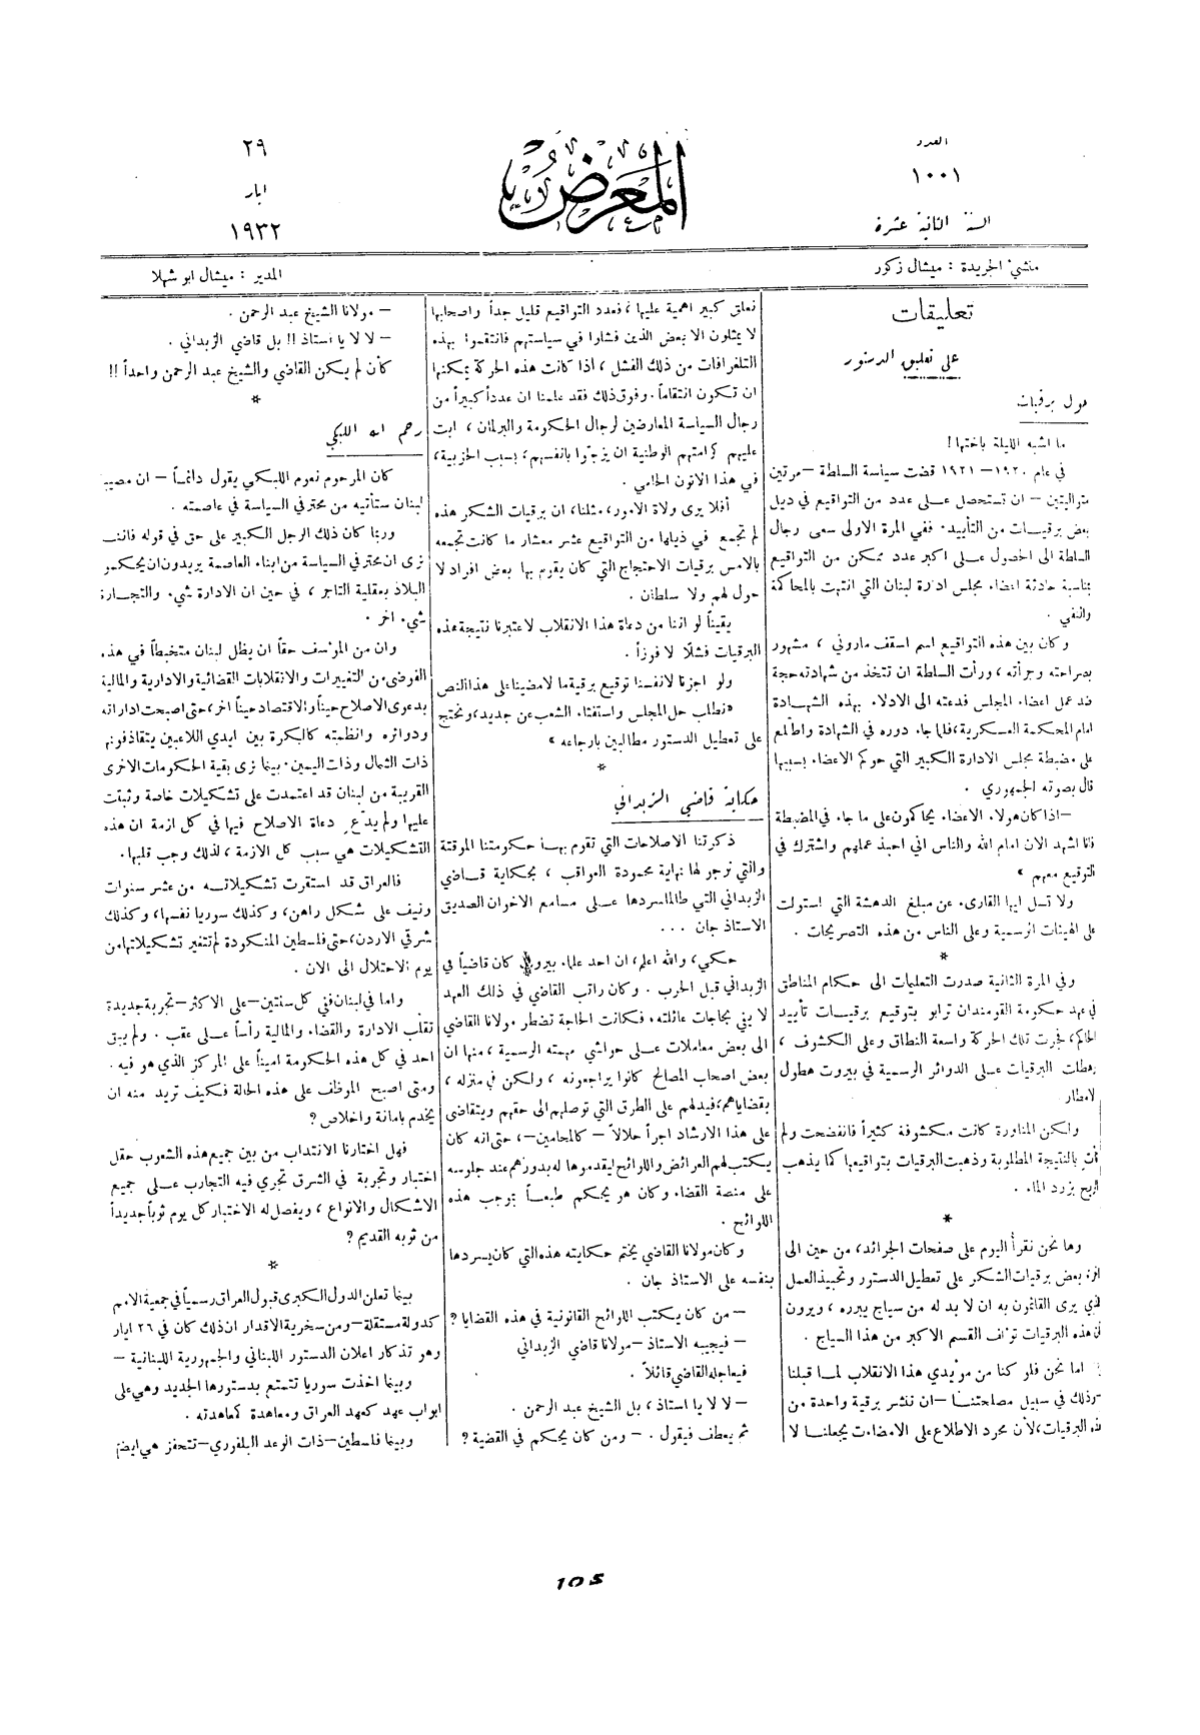 العدد
١٠٠١
السنة الثانية عشرة
المعرض
٢٩
ايار
١٩٣٢
منشئ الجريدة : ميشال زكور
المدير : ميشال ابو شهلا
تعليقات
على تعليق الدستور
حول برقيات
ما اشبه الليلة باختها !
في عام ١٩٢٠ – ١٩٢١ قضت سياسة السلطة – مرتين
متواليتين – ان تستحصل على عدد من التواقيع في ذيل
بعض برقيات من التأييد . ففي المرة الاولى سعى رجال
السلطة الى الحصول على اكبر عدد ممكن من التواقيع
بمناسبة حادثة اعضاء مجلس ادارة لبنان التي انتهت بالمحاكمة
والنفي .
وكان بين هذه التواقيع اسم اسقف ماروني ، مشهور
بصراحته وجرأته ، ورأت السلطة ان تتخذ من شهادته حجة
ضد عمل اعضاء المجلس فدعته الى الادلاء بهذه الشهادة
امام المحكمة العسكرية ، فلما جاء دوره في الشهادة واطّلع
على مضبطة مجلس الادارة الكبير التي حوكم الاعضاء بسببها
قال بصوته الجمهوري .
– اذا كان هولاء الاعضاء يحاكمون على ما جاء في المضبطة
فانا اشهد الان امام الله والناس اني احبذ عملهم واشترك في
التوقيع معهم »
ولا تسل ايها القارىء عن مبلغ الدهشة التي استولت
على الهيئات الرسمية وعلى الناس من هذه التصريحات .
*
وفي المرة الثانية صدرت التعليمات الى حكام المناطق
في عهد حكومة القومندان ترابو بتوقيع برقيات تأييد
الحاكم ، فجرت تلك الحركة واسعة النطاق وعلى الكشوف ،
وهطلت البرقيات على الدوائر الرسمية في بيروت هطول
الامطار
ولكن المناورة كانت مكشوفة كثيراً فانفضحت ولم
تأت بالنتيجة المطلوبة وذهبت البرقيات بتواقيعها كما يذهب
الريح بزرد الماء .
*
وها نحن نقرأ اليوم على صفحات الجرائد ، من حين الى
اخر ، بعض برقيات الشكر على تعطيل الدستور وتحبيذ العمل
الذي يرى القائمون به ان لا بد له من سياج يبرره ، ويرون
ان هذه البرقيات تؤلف القسم الاكبر من هذا السياج .
اما نحن فلو كنا من مؤيدي هذا الانقلاب لما قبلنا
– وذلك في سبيل مصلحتنا – ان ننشر برقية واحدة من
هذه البرقيات ، لأن مجرد الاطلاع على الامضاءات يجعلنا لا
نعلق كبير اهمية عليها ، فعدد التواقيع قليل جداً واصحابها
لا يمثلون الا بعض الذين فشلوا في سياستهم فانتقموا بهذه
التلغرافات من ذلك الفشل ، اذا كانت هذه الحركة يمكنها
ان تكون انتقاماً . وفوق ذلك فقد علمنا ان عدداً كبيراً من
رجال السياسة المعارضين لرجال الحكومة والبرلمان ، ابت
عليهم كرامتهم الوطنية ان يزجّوا بانفسهم ، بسبب الحزبية ،
في هذا الاتون الحامي .
أفلا يرى ولاة الامور ، مثلنا ، ان برقيات الشكر هذه
لم تجمع في ذيلها من التواقيع عشر معشار ما كانت تجمعه
بالامس برقيات الاحتجاج التي كان يقوم بها بعض افراد لا
حول لهم ولا سلطان .
يقيناً لو اننا من دعاة هذا الانقلاب لاعتبرنا نتيجة هذه
البرقيات فشلًا لا فوزاً .
ولو اجزنا لانفسنا توقيع برقية ما لامضينا على هذا النص
« نطلب حل المجلس واستفتاء الشعب عن جديد ، ونحتج
على تعطيل الدستور مطالبين بارجاعه »
*
حكاية قاضي الزبداني
ذكرتنا الاصلاحات التي تقوم بها حكومتنا الموقتة
والتي نرجو لها نهاية محمودة العواقب ، بحكاية قاضي
الزبداني التي طالما سردها على مسامع الاخوان الصديق
الاستاذ جان ...
حكي ، والله اعلم ، ان احد علماء بيروت كان قاضياً في
الزبداني قبل الحرب . وكان راتب القاضي في ذلك العهد
لا يفي بحاجات عائلته . فكانت الحاجة تضطر مولانا القاضي
الى بعض معاملات على حواشي مهمته الرسمية ، منها ان
بعض اصحاب المصالح كانوا يراجعونه ، ولكن في منزله ،
بقضاياهم ، فيدلهم على الطرق التي توصلهم الى حقهم ويتقاضى
على هذا الارشاد اجراً حلالاً – كالمحامين – ، حتى انه كان
يكتب لهم العرائض واللوائح ليقدموها له بدورهم عند جلوسه
على منصة القضاء وكان هو يحكم طبعاً بموجب هذه
اللوائح .
وكان مولانا القاضي يختم حكايته هذه التي كان يسردها
بنفسه على الاستاذ جان .
– من كان يكتب اللوائح القانونية في هذه القضايا ؟
– فيجيبه الاستاذ – مولانا قاضي الزبداني
فيعاجله القاضي قائلًا .
– لا لا يا استاذ ، بل الشيخ عبد الرحمن .
ثم يعطف فيقول . – ومن كان يحكم في القضية ؟
– مولانا الشيخ عبد الرحمن .
– لا لا يا استاذ !! بل قاضي الزبداني .
كأن لم يكن القاضي والشيخ عبد الرحمن واحداً !!
*
رحم الله اللبكي
كان المرحوم نعوم اللبكي يقول دائماً – ان مصيبة
لبنان ستأتيه من محترفي السياسة في عاصمته .
وربما كان ذلك الرجل الكبير على حق في قوله فاننا
نرى ان محترفي السياسة من ابناء العاصمة يريدون ان يحكموا
البلاد بعقلية التاجر ، في حين ان الادارة شيء والتجارة
شيء اخر .
وان من المؤسف حقاً ان يظل لبنان متخبطاً في هذه
الفوضى من التغييرات والانقلابات القضائية والادارية والمالية
بدعوى الاصلاح حيناً والاقتصاد حيناً اخر ، حتى اصبحت اداراته
ودوائره وانظمته كالبكرة بين ايدي اللاعبين يتقاذفونها
ذات الشمال وذات اليمين . بينما نرى بقية الحكومات الاخرى
القريبة من لبنان قد اعتمدت على تشكيلات خاصة وثبتت
عليها ولم يدّع دعاة الاصلاح فيها في كل ازمة ان هذه
التشكيلات هي سبب كل الازمة ، لذلك وجب قلبها .
فالعراق قد استقرت تشكيلاته من عشر سنوات
ونيف على شكل راهن ، وكذلك سوريا نفسها ، وكذلك
شرقي الاردن ، حتى فلسطين المنكودة لم تتغير تشكيلاتها من
يوم الاحتلال الى الان .
واما في لبنان ففي كل سنتين – على الاكثر – تجربة جديدة
تقلب الادارة والقضاء والمالية رأساً على عقب . ولم يبق
احد في كل هذه الحكومة اميناً على المركز الذي هو فيه .
ومتى اصبح الموظف على هذه الحالة فكيف تريد منه ان
يخدم بامانة واخلاص ؟
فهل اختارنا الانتداب من بين جميع هذه الشعوب حقل
اختبار وتجربة في الشرق تجري فيه التجارب على جميع
الاشكال والانواع ، ويفصل له الاختبار كل يوم ثوباً جديداً
من ثوبه القديم ؟
*
بينما تعلن الدول الكبرى قبول العراق رسمياً في جمعية الامم
كدولة مستقلة – ومن سخرية الاقدار ان ذلك كان في ٢٦ ايار
وهو تذكار اعلان الدستور اللبناني والجمهورية اللبنانية –
وبينما اخذت سوريا تتمتع بدستورها الجديد وهي على
ابواب عهد كعهد العراق ومعاهدة كمعاهدته .
وبينما فلسطين – ذات الوعد البلفوري – تتحفز هي ايضاً
105